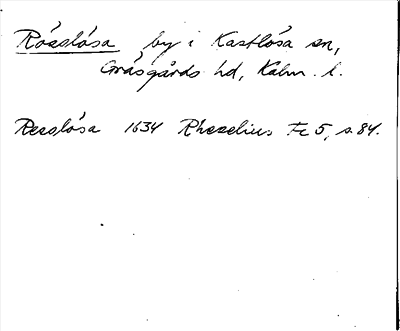 Röaslösa by i Kastlösa sn,
Gräsgårds hd, Kalm. l.
Reeslösa 1634 Rhezelius Fc 5, s. 84.